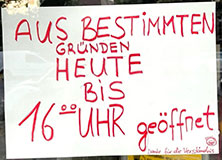 AUS BESTIMMTEN
GRÜNDEN
HEUTE
BIS
16⁰⁰ UHR geöffnet
Danke für Ihr Verständnis